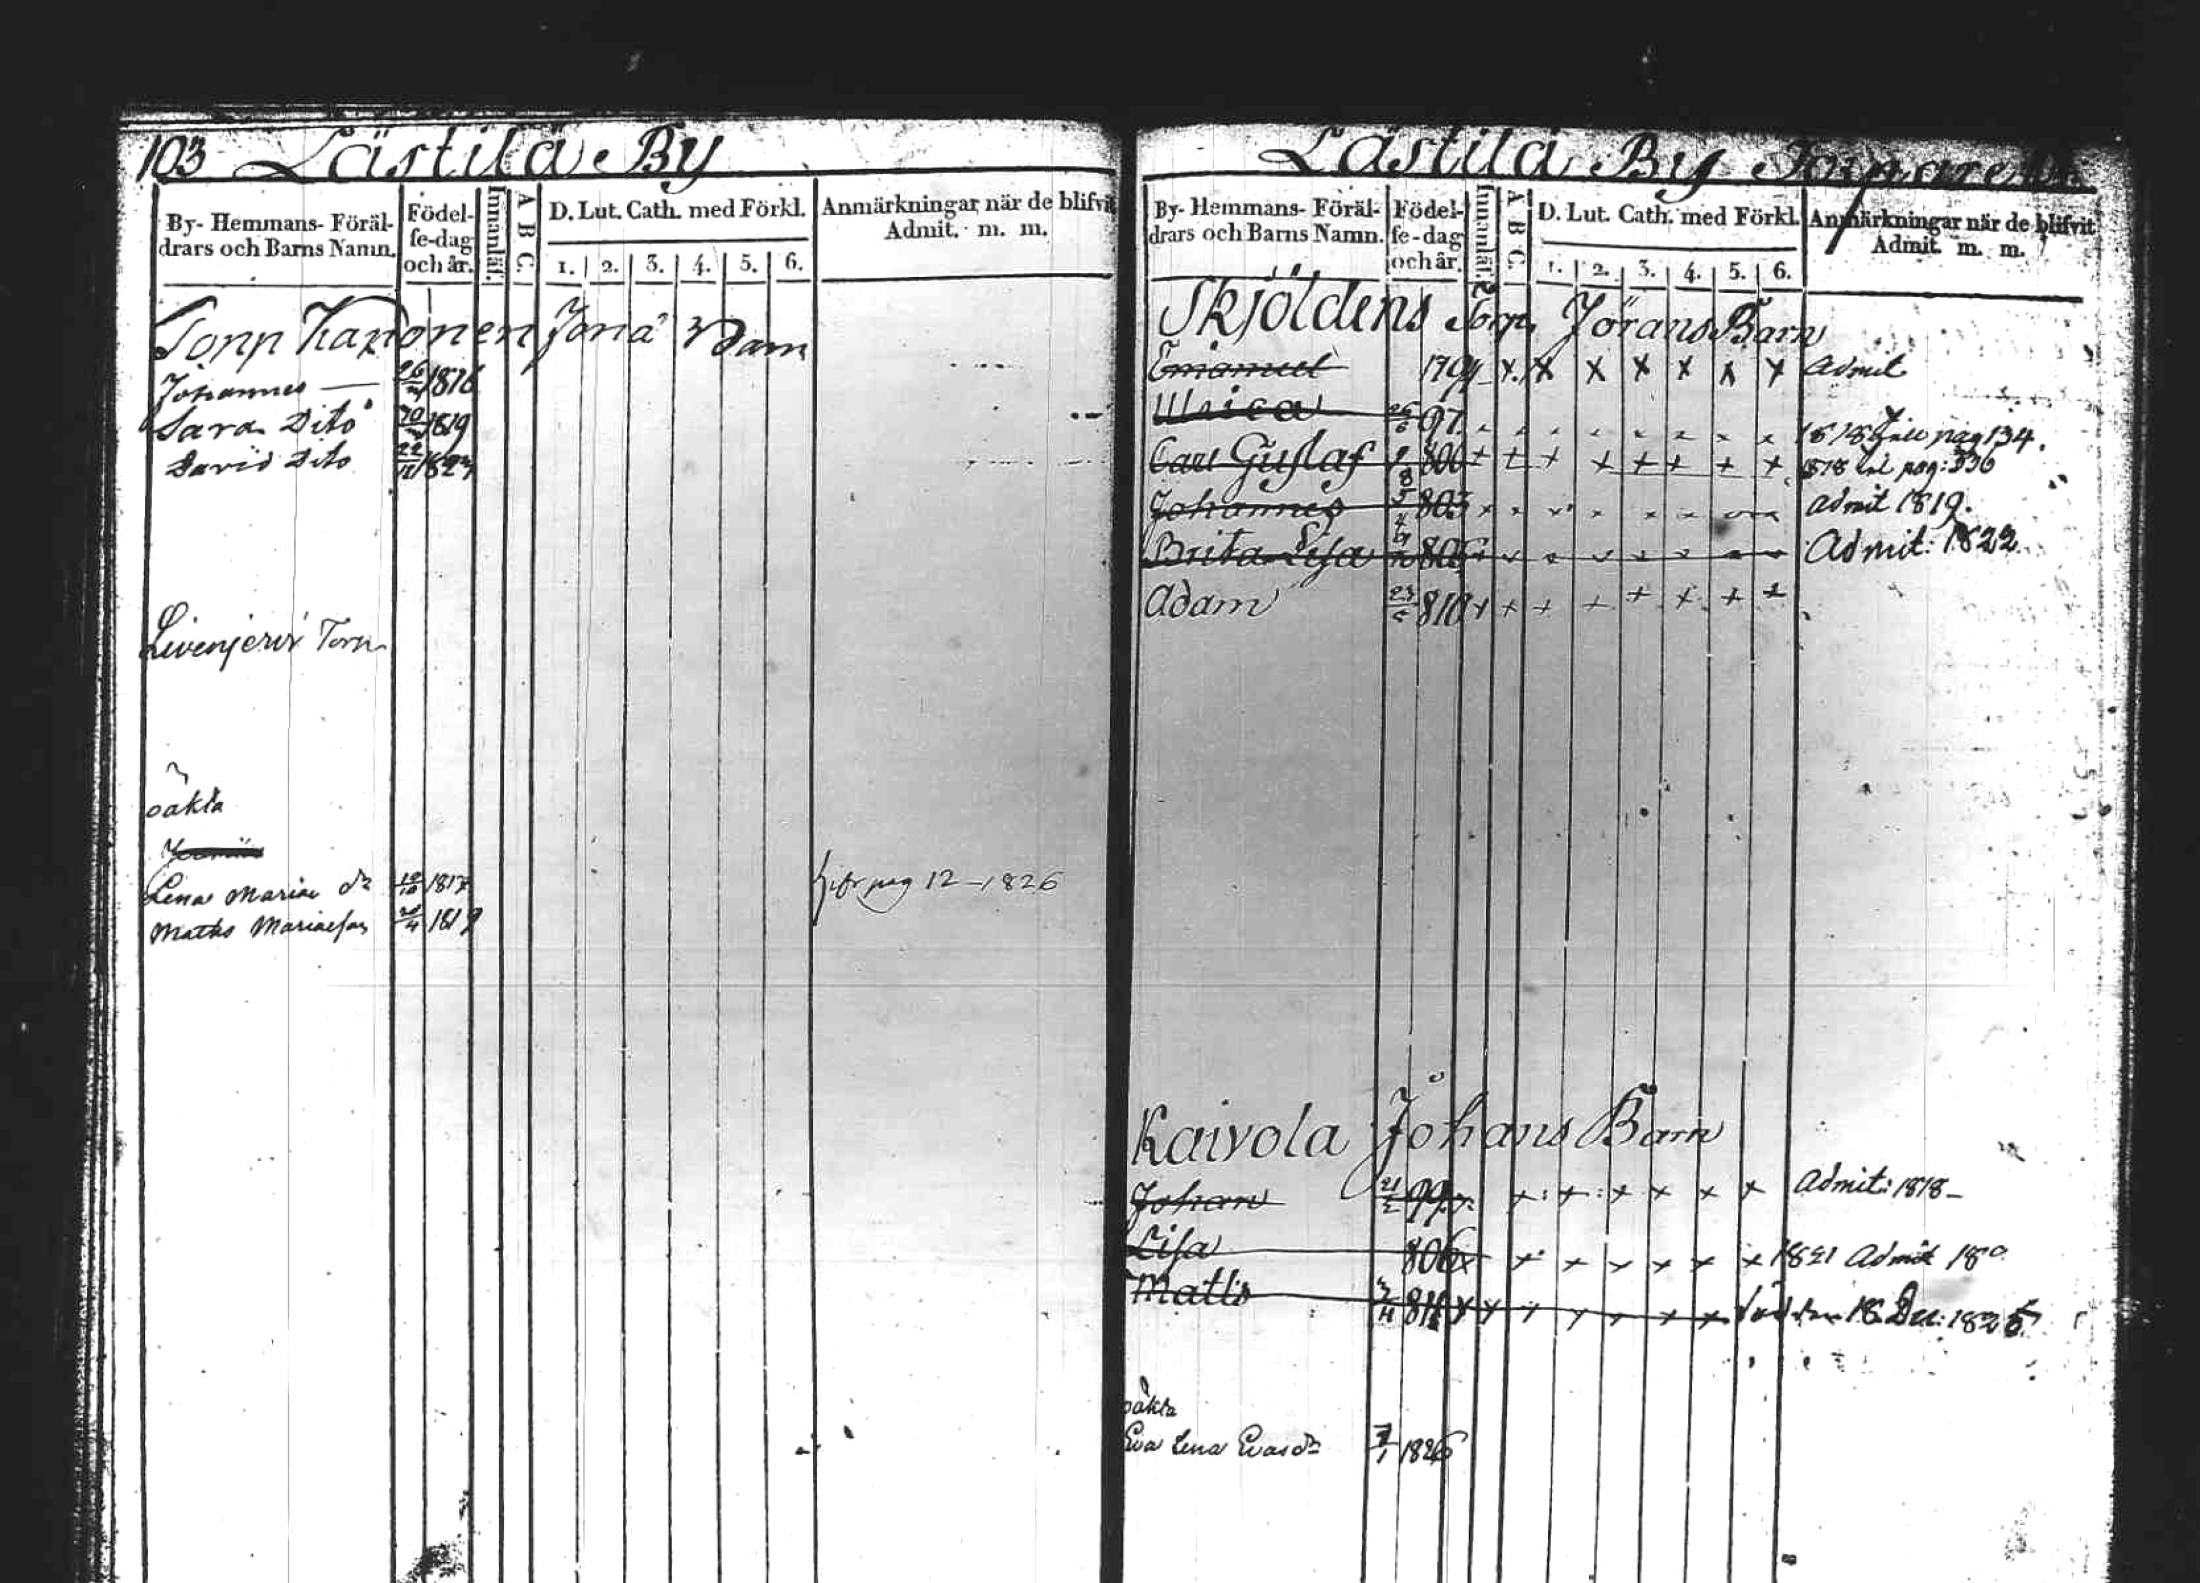 103 Lästilä By
By- Hemmans- Föräl-
drars och Barns Namn.
Födel-
se-dag
och år.
Innanläs:
A B C.
D. Lut. Cath. med Förkl.
1. 2. 3. 4. 5. 6.
Anmärkningar när de blifvit
Admit. m. m.
Torp Kanonen Jona
Johannes — 1816
Sara Dito 1819
David Dito 22 1823
Livenjervi Torp
oäkta
Lena Mariae dr 1817
Matts Mariaeson 1819
pag 12 - 1826
Lästilä By Torpare
By- Hemmans- Föräl-
drars och Barns Namn.
Födel-
se-dag
och år.
Innanläs:
A B C.
D. Lut. Cath. med Förkl.
1. 2. 3. 4. 5. 6.
Anmärkningar när de blifvit
Admit. m. m.
Skjöldens Torp, Jörans Barn
Emanuel 1794 x x x x x x x x Admit
Ulrica 97 1818 pag 134.
Carl Gustaf 800 x x x x x x x x 1818 pag: 336
Johannes 803 x x admit 1819.
Brita Lisa Admit: 1822
Adam 23 810 x x x x x x x x
Kaivola Johans Barn
Johan 21 99 x x x x x x Admit: 1818 -
Lisa 806 x x x x x x x 1821 Admit
Matts 811 x x x x x x x död den 18 Dec: 1825
oäkta
Eva Lena Evasdr 1826